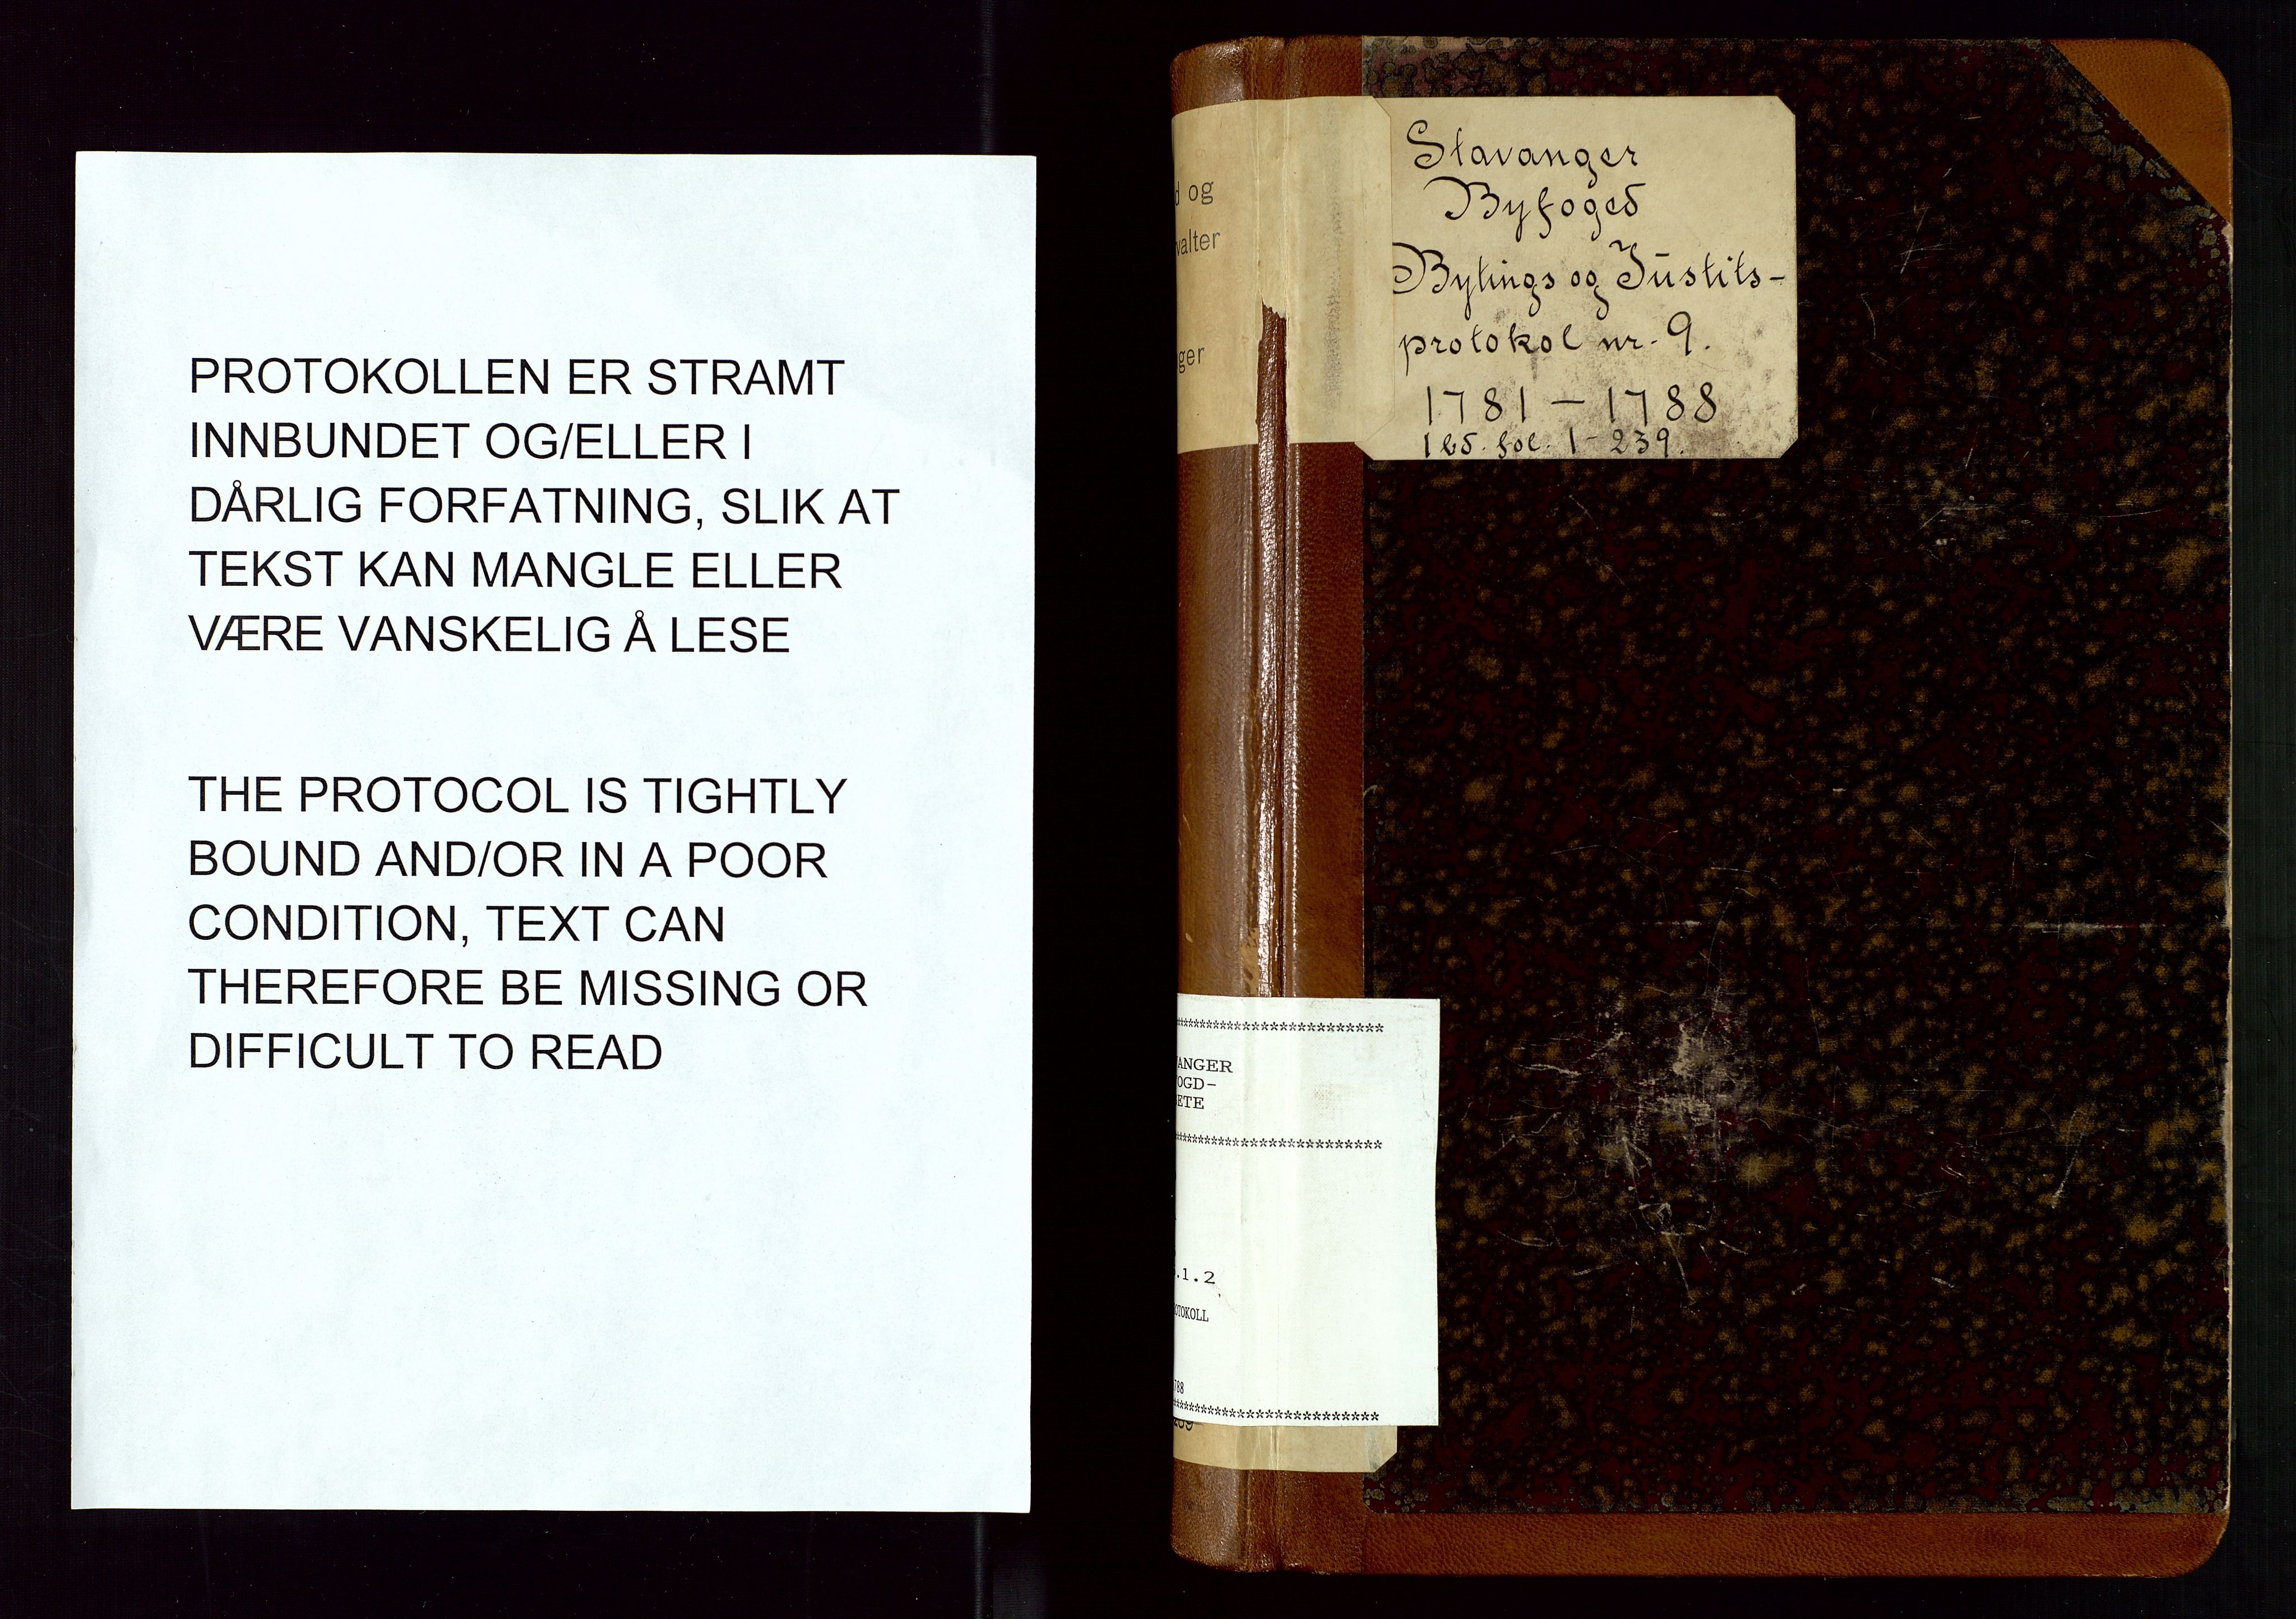 PROTOKOLLEN ER STRAMT
INNBUNDET OG/ELLER I
DÅRLIG FORFATNING, SLIK AT
TEKST KAN MANGLE ELLER
VÆRE VANSKELIG Å LESE
THE PROTOCOL IS TIGHTLY
BOUND AND/OR IN A POOR
CONDITION, TEXT CAN
THEREFORE BE MISSING OR
DIFFICULT TO READ
d og
valter
ger
Stavanger
Byfoged
Bytings og Justits-
protokol nr. 9.
1781 - 1788
1 bd. fol. 1 - 239.
VANGER
OGD-
ETE
.1.2
OTOKOLL
788
239